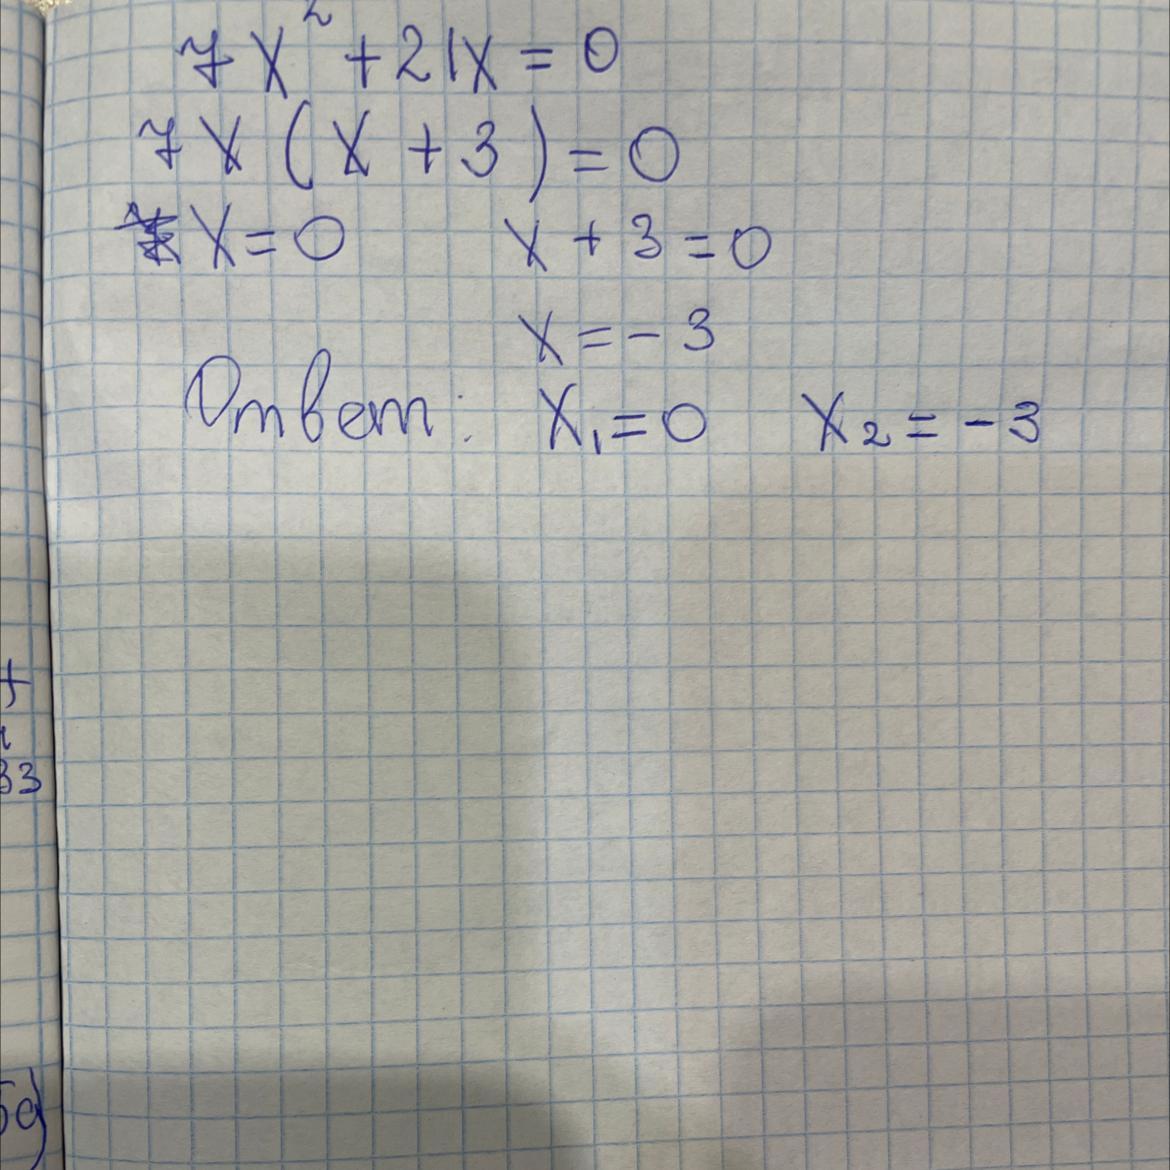 7x² + 21x = 0
7x (x + 3) = 0
x = 0 x + 3 = 0
x = - 3
Ответ: x₁ = 0 x₂ = - 3
33